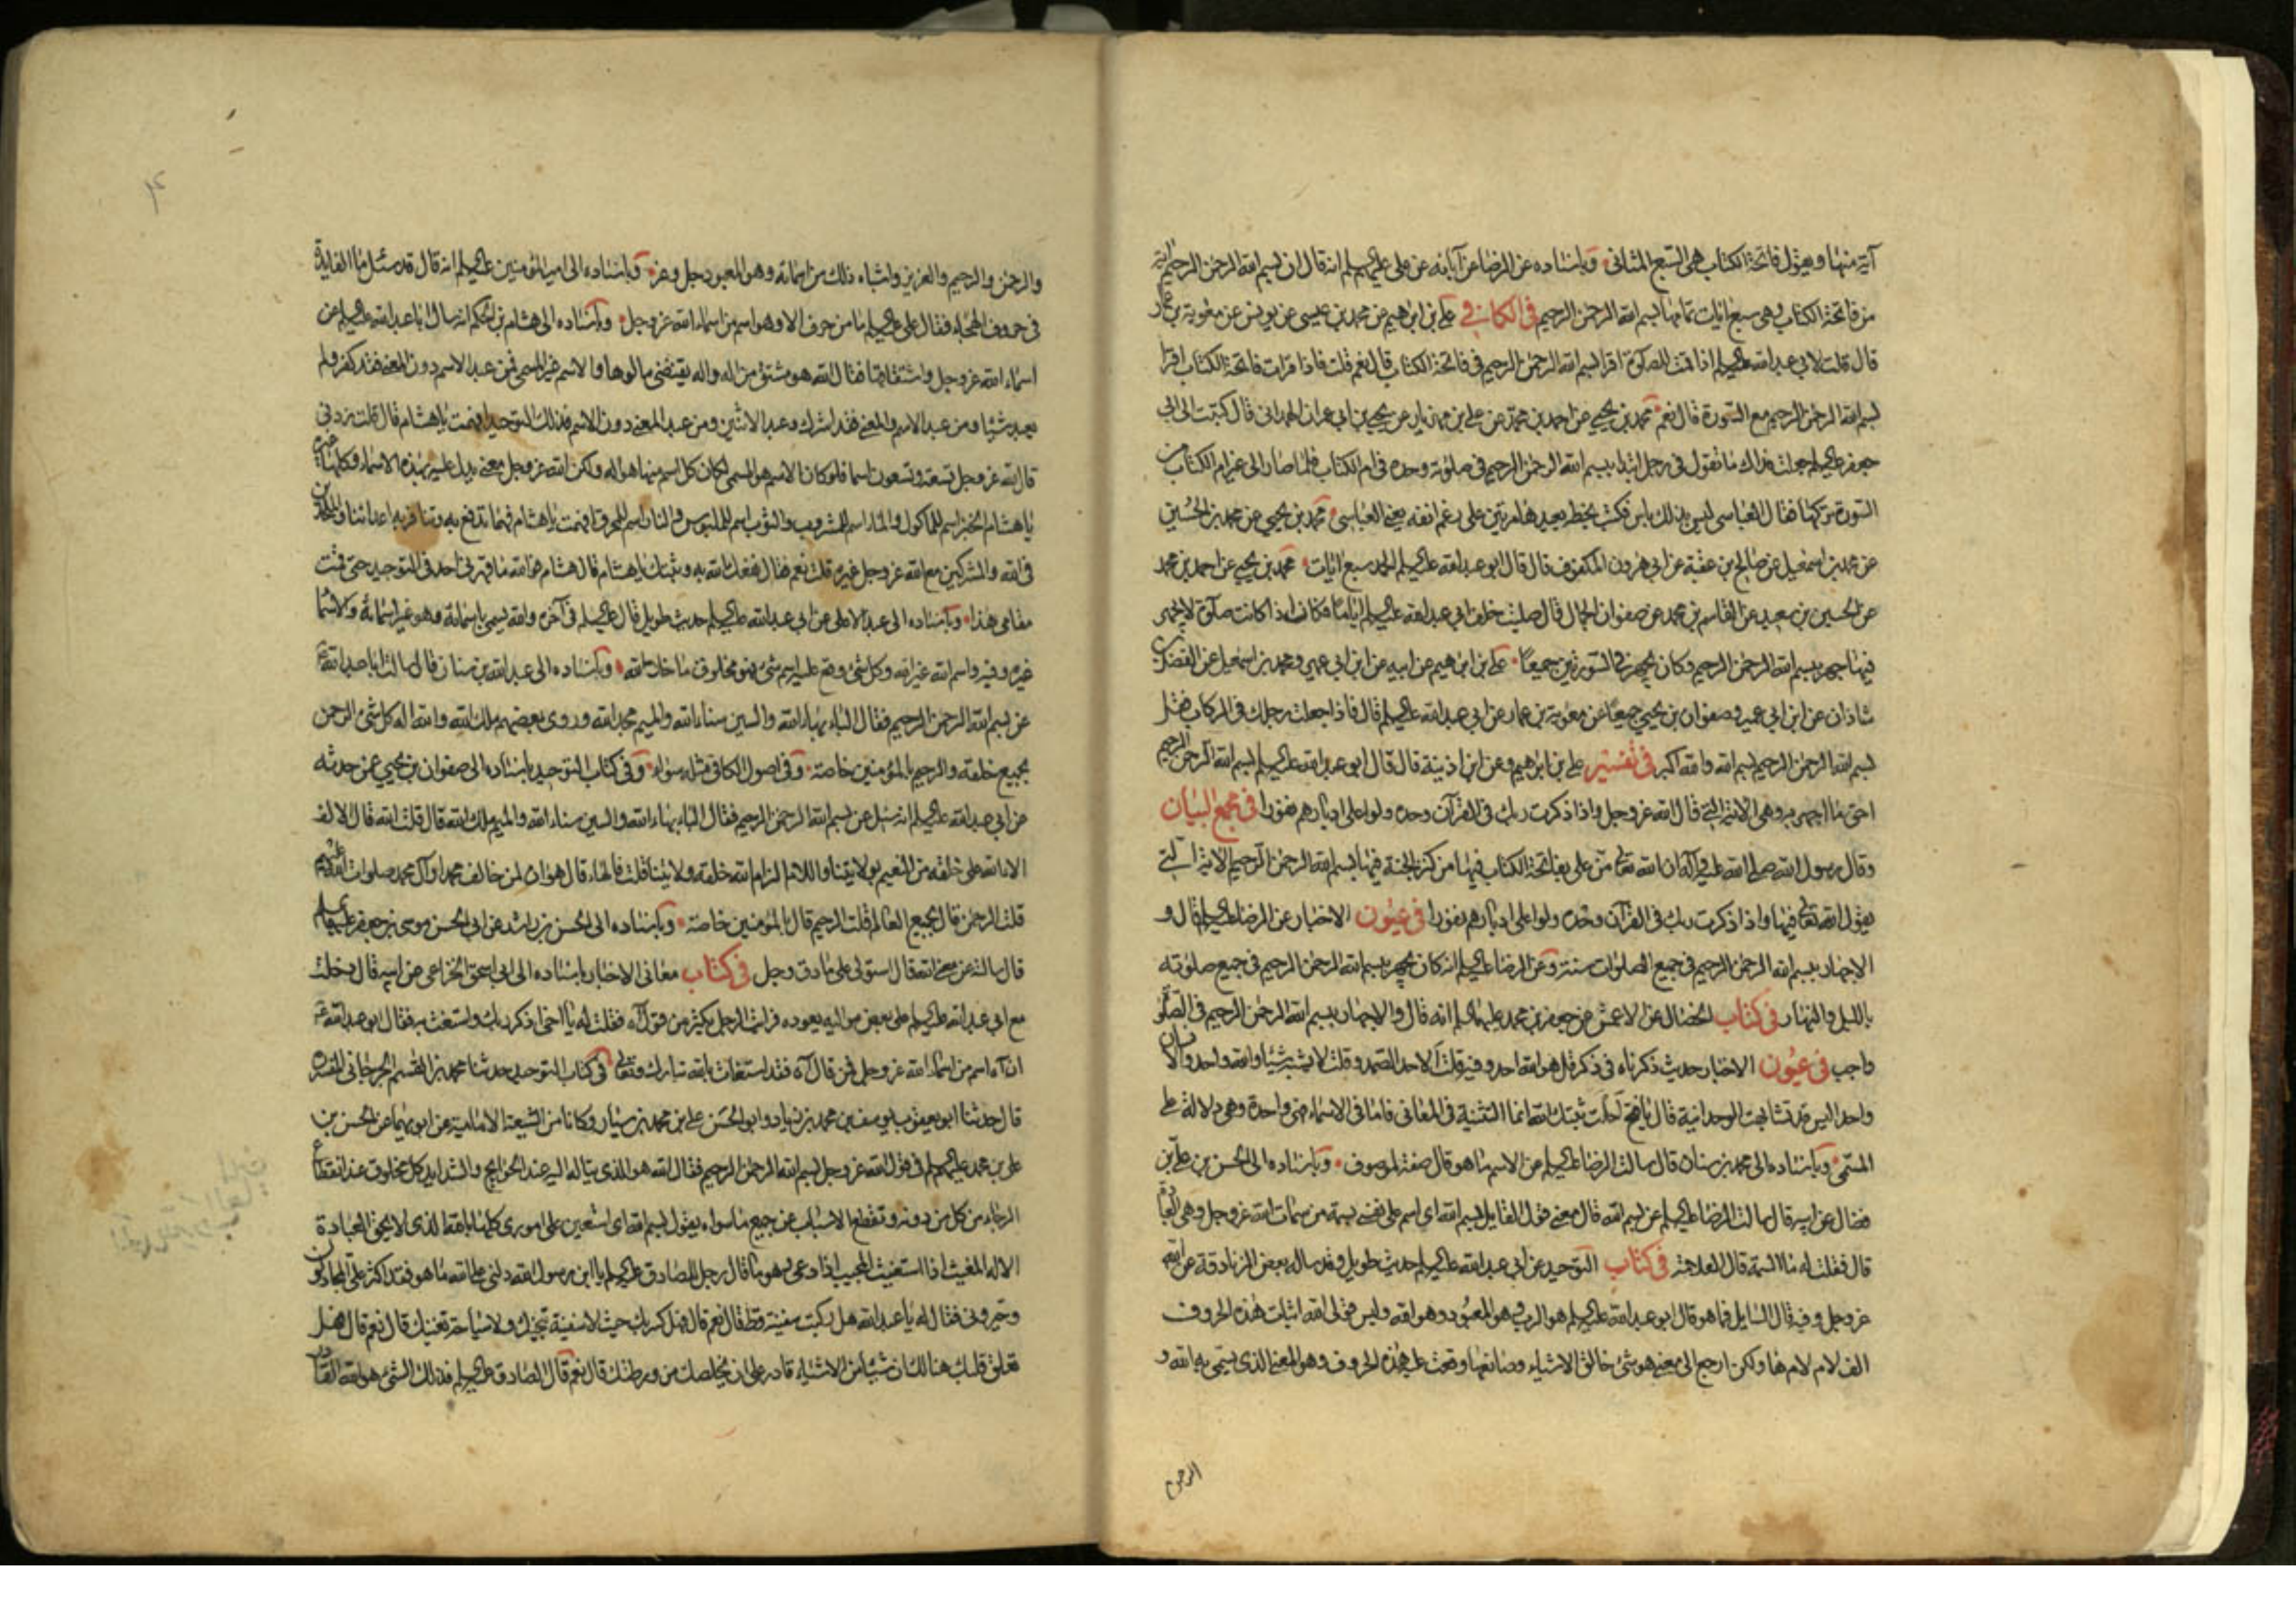 آية منها ويقول فاتحة الكتاب هي السبع المثاني وباسناده عن الرضا عن آبائه عن علي عليهم السلم انه قال ان بسم الله الرحمن الرحيم آية
من فاتحة الكتاب وهي سبع ايات تمامها بسم الله الرحمن الرحيم في الكافي علي بن ابرهيم عن محمد بن عيسى عن يونس عن معوية بن عمار
قال قلت لابي عبد الله عليه السلم اذا قمت للصلوة اقرا بسم الله الرحمن الرحيم في فاتحة الكتاب قال نعم قلت فاذا قرات فاتحة الكتاب اقرا
بسم الله الرحمن الرحيم مع السورة قال نعم محمد بن يحيى عن احمد بن محمد عن علي بن مهزيار عن يحيى بن ابي عمران الهمداني قال كتبت الى ابي
جعفر عليه السلم جعلت فداك ما تقول في رجل ابتدا ببسم الله الرحمن الرحيم في صلوته وحده في ام الكتاب فلما صار الى غير ام الكتاب من
السورة تركها فقال العباسي ليس بذلك باس فكتب بخطه يعيدها مرتين على رغم انفه يعني العباسي محمد بن يحيى عن محمد بن الحسين
عن محمد بن اسمعيل عن صالح بن عقبة عن ابي هرون المكفوف قال قال ابو عبد الله عليه السلم الحمد سبع ايات محمد بن يحيى عن احمد بن محمد
عن الحسين بن سعيد عن القاسم بن محمد عن صفوان الجمال قال صليت خلف ابي عبد الله عليه السلم اياما فكان اذا كانت صلوة لا يجهر
فيها جهر ببسم الله الرحمن الرحيم وكان يجهر في السورتين جميعا علي بن ابرهيم عن ابيه عن ابن ابي عمير ومحمد بن اسمعيل عن الفضل بن
شاذان عن ابن ابي عمير وصفوان بن يحيى جميعا عن معوية بن عمار عن ابي عبد الله عليه السلم قال فاذا جعلت رجلك في الركاب فقل
بسم الله الرحمن الرحيم بسم الله والله اكبر في تفسير علي بن ابرهيم وعن ابن اذينة قال قال ابو عبد الله عليه السلم بسم الله الرحمن الرحيم
احق ما اجهر به وهي الاية التي قال الله عز وجل واذا ذكرت ربك في القرآن وحده ولوا على ادبارهم نفورا في مجمع البيان
وقال رسول الله صلى الله عليه وآله ان الله تعالى من علي بفاتحة الكتاب فيها من كنز الجنة فيها بسم الله الرحمن الرحيم الاية التي
يقول الله تعالى فيها واذا ذكرت ربك في القرآن وحده ولوا على ادبارهم نفورا في عيون الاخبار عن الرضا عليه السلم قال و
الاجهار ببسم الله الرحمن الرحيم في جميع الصلوات سنة وعن الرضا عليه السلم انه كان يجهر ببسم الله الرحمن الرحيم في جميع صلوته
بالليل والنهار في كتاب الخصال عن الاعمش عن جعفر بن محمد عليهما السلم انه قال والاجهار ببسم الله الرحمن الرحيم في الصلوة
واجب في عيون الاخبار حديث ذكرناه في ذكر قل هو الله احد وفيه قلت الاحد الصمد وقلت لا يشبه شيئا والله واحد والانسان
واحد اليس قد تشابهت الوحدانية قال يا فتح احلت ثبتك الله انما التشبيه في المعاني فاما في الاسماء فهي واحدة وهي دلالة على
المسمى وباسناده الى محمد بن سنان قال سالت الرضا عليه السلم عن الاسم ما هو قال صفة لموصوف وباسناده الى الحسن بن علي بن
فضال عن ابيه قال سالت الرضا عليه السلم عن بسم الله قال معنى قول القايل بسم الله اي اسم على نفسي بسمة من سمات الله عز وجل وهي العبادة
قال فقلت له ما السمة قال العلامة في كتاب التوحيد عن ابي عبد الله عليه السلم حديث طويل وقد ساله بعض الزنادقة عن الله
عز وجل وفيه قال السايل فما هو قال ابو عبد الله عليه السلم هو الرب وهو المعبود وهو الله وليس قولي الله اثبات هذه الحروف
الف لام لام ها ولكن ارجع الى معنى هو شيء خالق الاشياء وصانعها وقعت عليه هذه الحروف وهو المعنى الذي يسمى به الله و
الرحمن
والرحمن والرحيم والعزيز واشباه ذلك من اسمائه وهو المعبود جل وعز وباسناده الى امير المؤمنين عليه السلم انه قال قد سئل ما الفايدة
في حروف الهجاء فقال علي عليه السلم ما من حرف الا وهو اسم من اسماء الله عز وجل وباسناده الى هشام بن الحكم انه سال ابا عبد الله عليه السلم عن
اسماء الله عز وجل واشتقاقها فقال الله هو مشتق من اله واله يقتضي مالوها والاسم غير المسمى فمن عبد الاسم دون المعنى فقد كفر ولم
يعبد شيئا ومن عبد الاسم والمعنى فقد اشرك وعبد الاثنين ومن عبد المعنى دون الاسم فذلك التوحيد افهمت يا هشام قال قلت زدني
قال لله عز وجل تسعة وتسعون اسما فلو كان الاسم هو المسمى لكان كل اسم منها هو اله ولكن الله عز وجل معنى يدل عليه بهذه الاسماء وكلها غيره
يا هشام الخبز اسم للماكول والماء اسم للمشروب والثوب اسم للملبوس والنار اسم للمحرق افهمت يا هشام فهما تدفع به وتنافر به اعدائنا والملحدين
في الله والمشركين مع الله عز وجل غيره قلت نعم فقال نفعك الله به وثبتك يا هشام قال هشام فوالله ما قهرني احد في التوحيد حتى قمت
مقامي هذا وباسناده الى عبد الاعلى عن ابي عبد الله عليه السلم حديث طويل قال عليه السلم في آخره والله يسمى باسمائه وهو غير اسمائه والاسماء
غيره وفيه واسم الله غير الله وكل شيء وقع عليه اسم شيء فهو مخلوق ما خلا الله وباسناده الى عبد الله بن سنان قال سالت ابا عبد الله ع
عن بسم الله الرحمن الرحيم فقال الباء بهاء الله والسين سناء الله والميم مجد الله وروى بعضهم ملك الله والله اله كل شيء الرحمن
بجميع خلقه والرحيم بالمؤمنين خاصة وفي اصول الكافي مثله سواء وفي كتاب التوحيد باسناده الى صفوان بن يحيى عمن حدثه
عن ابي عبد الله عليه السلم انه سئل عن بسم الله الرحمن الرحيم فقال الباء بهاء الله والسين سناء الله والميم ملك الله قال قلت الله قال الالف
الاء الله على خلقه من النعيم بولايتنا واللام الزام الله خلقه ولايتنا قلت فالهاء قال هوان لمن خالف محمدا وآل محمد صلوات الله عليهم
قلت الرحمن قال بجميع العالم قلت الرحيم قال بالمؤمنين خاصة وباسناده الى الحسن بن راشد عن ابي الحسن موسى بن جعفر عليهما السلم
قال سالته عن معنى الله قال استولى على ما دق وجل في كتاب معاني الاخبار باسناده الى ابي اسحق الخزاعي عن ابيه قال دخلت
مع ابي عبد الله عليه السلم على بعض مواليه يعوده فرايت الرجل يكثر من قول آه فقلت له يا اخي اذكر ربك واستغث به فقال ابو عبد الله ع
ان آه اسم من اسماء الله عز وجل فمن قال آه فقد استغاث بالله تبارك وتعالى في كتاب التوحيد حدثنا محمد بن القسم الجرجاني المفسر
قال حدثنا ابو يعقوب يوسف بن محمد بن زياد وابو الحسن علي بن محمد بن سيار وكانا من الشيعة الامامية عن ابويهما عن الحسن بن
علي بن محمد عليهم السلم في قول الله عز وجل بسم الله الرحمن الرحيم فقال الله هو الذي يتاله اليه عند الحوايج والشدايد كل مخلوق عند انقطاع
الرجاء من كل من دونه وتقطع الاسباب عن جميع ما سواه يقول بسم الله اي استعين على اموري كلها بالله الذي لا يحق العبادة
الا له المغيث اذا استغيث المجيب اذا دعي وهو ما قال رجل للصادق عليه السلم يا ابن رسول الله دلني على الله ما هو فقد اكثر علي المجادلون
وحيروني فقال له يا عبد الله هل ركبت سفينة قط قال نعم قال فهل كسر بك حيث لا سفينة تنجيك ولا سباحة تغنيك قال نعم قال فهل
تعلق قلبك هنالك ان شيئا من الاشياء قادر على ان يخلصك من ورطتك قال نعم قال الصادق عليه السلم فذلك الشيء هو الله القادر